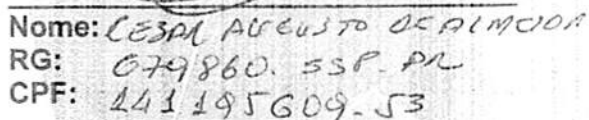 Nome: CESAR AUGUSTO DE ALMEIDA
RG: 679860. SSP. PR
CPF: 141195609-53